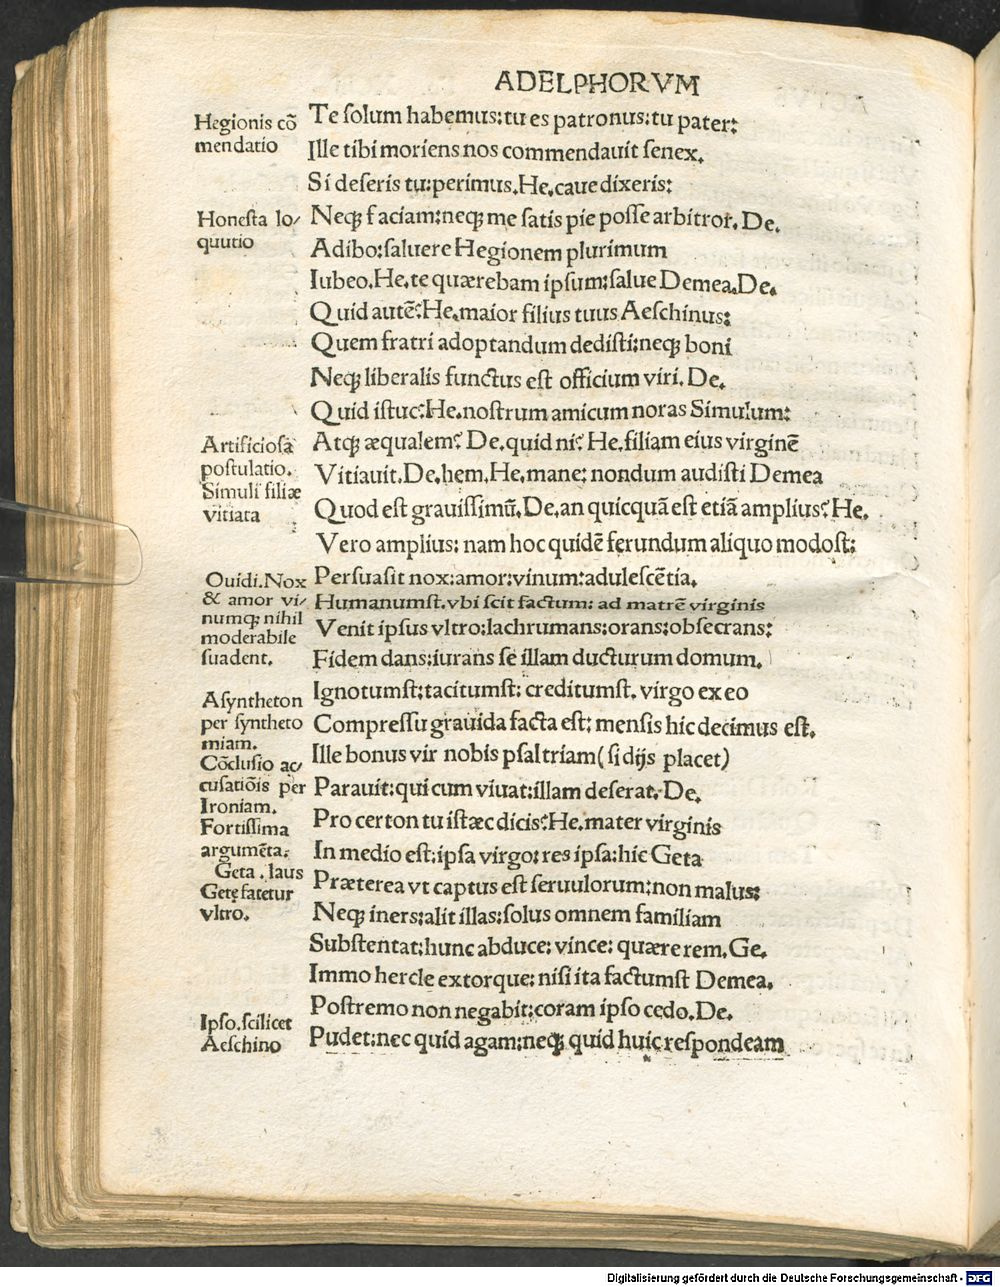 ADELPHORVM
Hegionis cō
mendatio
Te ſolum habemus:tu es patronus:tu pater:
Ille tibi moriens nos commendauit ſenex.
Si deſeris tu:perimus.He.caue dixeris:
Honeſta lo/
quutio
Neqꝫ faciam:neqꝫ me ſatis pie poſſe arbitror. De.
Adibo:ſaluere Hegionem plurimum
Iubeo.He.te quærebam ipſum:ſalue Demea.De.
Quid autē?He.maior filius tuus Aeſchinus:
Quem fratri adoptandum dediſti:neqꝫ boni
Neqꝫ liberalis functus eſt officium viri. De.
Quid iſtuc?He.noſtrum amicum noras Simulum:
Artificioſa
poſtulatio.
Simuli filiæ
vitiata
Atqꝫ æqualem? De.quid ni? He.filiam eius virginē
Vitiauit.De.hem.He.mane: nondum audiſti Demea
Quod eſt grauiſſimū.De.an quicquā eſt etiā amplius?He.
Vero amplius: nam hoc quidē ferundum aliquo modoſt:
Ouidi.Nox
& amor vi/
numqꝫ nihil
moderabile
ſuadent.
Perſuaſit nox:amor:vinum:aduleſcētia.
Humanumſt.vbi ſcit factum: ad matrē virginis
Venit ipſus vltro:lachrumans:orans:obſecrans:
Fidem dans:iurans ſe illam ducturum domum.
Aſyntheton
per ſyntheto
miam.
Cōcluſio ac/
cuſatiōis per
Ironiam.
Fortiſſima
argumēta.
Geta .laus
Getę fatetur
vltro.
Ignotumſt:tacitumſt: creditumſt. virgo ex eo
Compreſſu grauida facta eſt: menſis hic decimus eſt.
Ille bonus vir nobis pſaltriam(ſi dijs placet)
Parauit:quicum viuat:illam deſerat. De.
Pro certon tu iſtæc dicis?He.mater virginis
In medio eſt:ipſa virgo:res ipſa:hic Geta
Præterea vt captus eſt ſeruulorum:non malus:
Neqꝫ iners:alit illas:ſolus omnem familiam
Subſtentat:hunc abduce: vince: quære rem. Ge.
Immo hercle extorque: niſi ita factumſt Demea.
Poſtremo non negabit:coram ipſo cedo.De.
Ipſo.ſcilicet
Aeſchino
Pudet:nec quid agam:neqꝫ quid huic reſpondeam
Digitalisierung gefördert durch die Deutsche Forschungsgemeinschaft - DFG